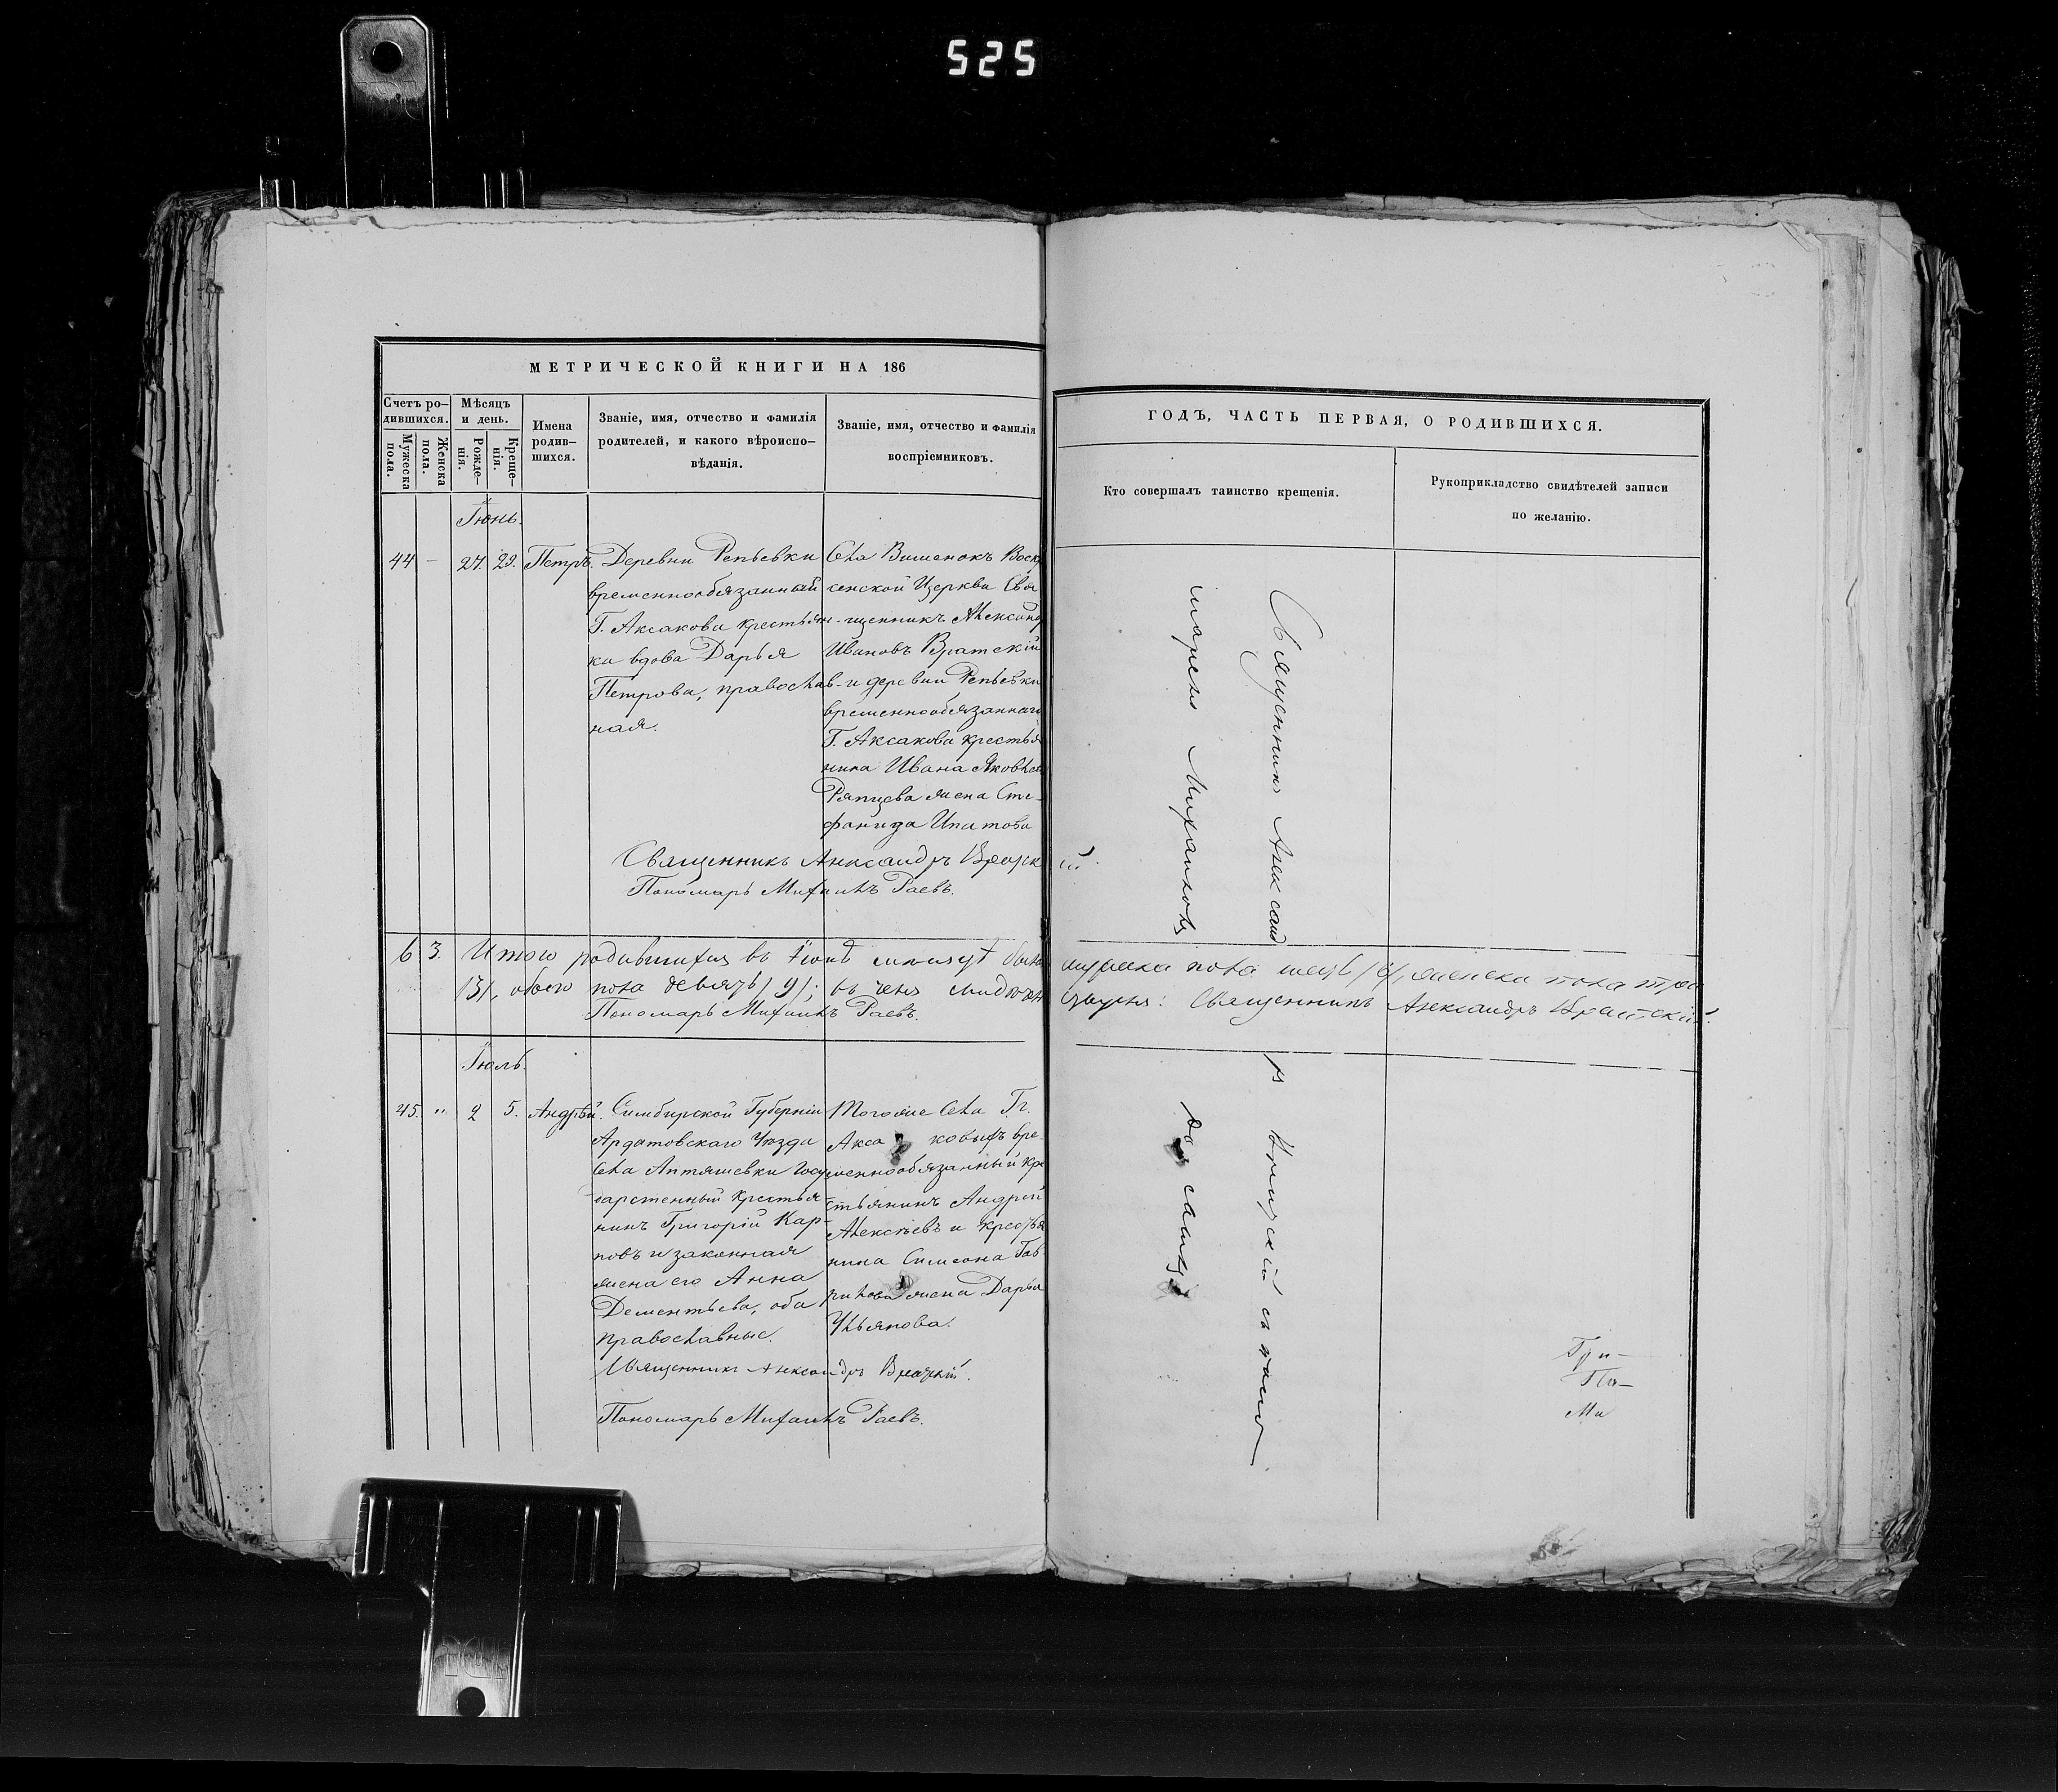 525
МЕТРИЧЕСКОЙ КНИГИ НА 186
Счетъ ро-
дившихся.
Мужеска
пола.
Женска
пола.
Мѣсяцъ
и день.
Рожде-
нія.
Креще-
нія.
Имена
родив-
шихся.
Званіе, имя, отчество и фамилія
родителей, и какого вѣроиспо-
вѣданія.
Званіе, имя, отчество и фамилія
воспріемниковъ.
Іюнь.
44 - 27. 29. Петръ.
Деревни Репьевки
временнообязанный
Г. Аксакова крестьян-
ка вдова Дарья
Петрова, православ-
ная.
Села Вишенокъ Воскр
сенской Церкви Свя
щенникъ Александ
Ивановъ Братскій
и деревни Репьевки
временнообязаннаго
Г. Аксакова крестья
нина Ивана Яковлев
Ряпцева жена Сте-
фанида Ипатова
Священникъ Александръ Братск
ій.
Пономарь Михаилъ Раевъ.
6 3. Итого родившихся въ іюнѣ мѣсяцѣ было
/3/, обоего пола девять /9/; въ чемъ
Пономарь Михаилъ Раевъ.
Іюль.
45. " 2 5. Андрѣй.
Симбирской Губерніи
Ардатовскаго Уѣзда
Села Аптяшевки Госу
дарственный крестья-
нинъ Григорій Кар-
повъ и законная
жена его Анна
Дементьева, оба
православные.
Тогоже села Гг.
Аксаковыхъ вре-
меннообязанный кре
стьянинъ Андрей
Алексѣевъ и крестья
нина Симеона Гав
рилова жена Дарья
Ульянова.
Священникъ Александръ Братскій.
Пономарь Михаилъ Раевъ.
ГОДЪ, ЧАСТЬ ПЕРВАЯ, О РОДИВШИХСЯ.
Кто совершалъ таинство крещенія.
Рукоприкладство свидѣтелей записи
по желанію.
Священникъ Александ
ръ Братскій съ поно
маремъ Михаиломъ
Раевымъ
мужеска пола шесть /6/, женска пола три
Священникъ Александръ Братскій.
Гри-
По-
Ми